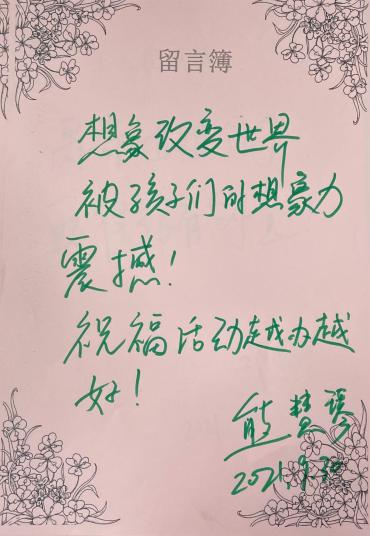 留言簿
想象改变世界
被孩子们的想象力
震撼！
祝福活动越办越
好！
熊
2021.9.30